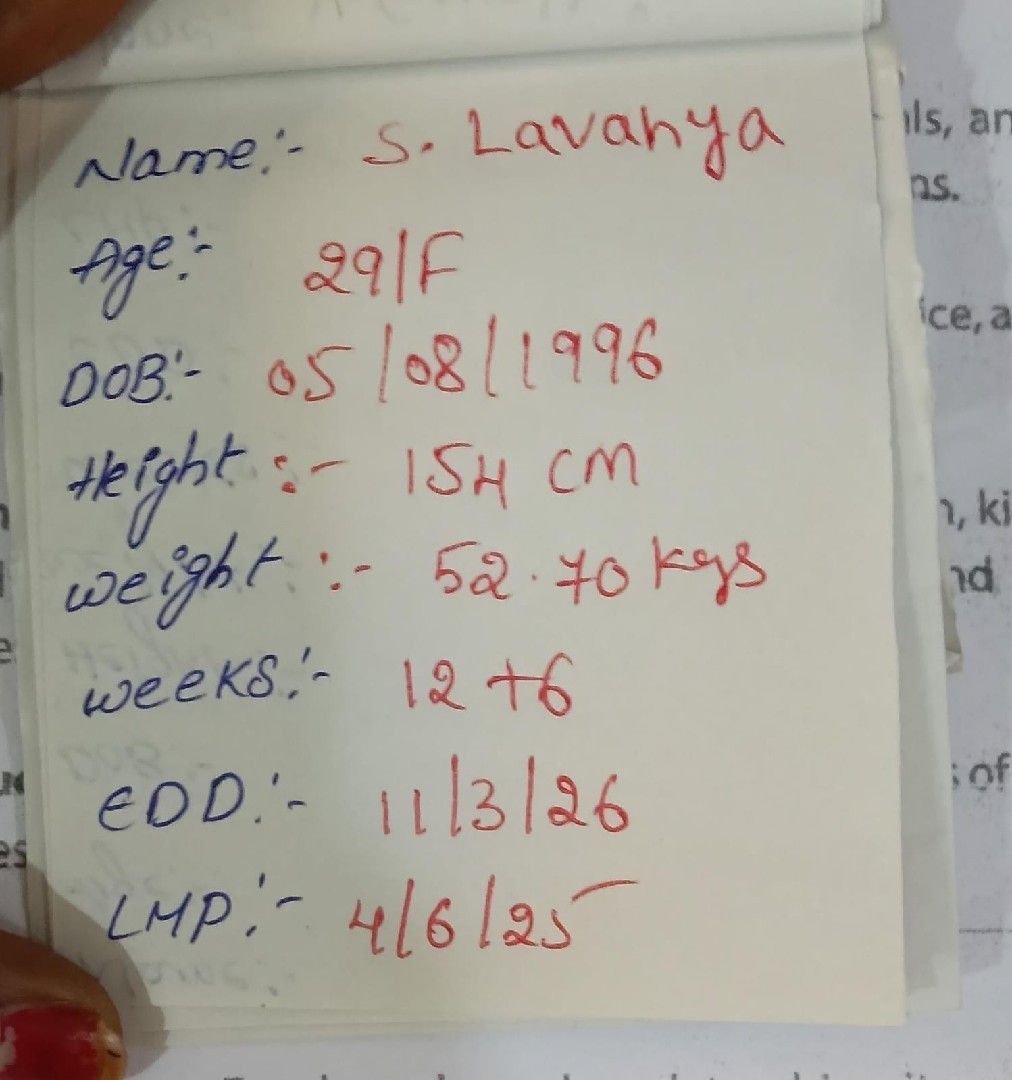 Name:- S. Lavanya
Age:- 29/F
DOB:- 05/08/1996
Height:- 154 cm
weight:- 52.70 kgs
weeks:- 12+6
EDD:- 11/3/26
LMP:- 4/6/25
ls, an
ns.
ice, a
n, ki
nd
s of